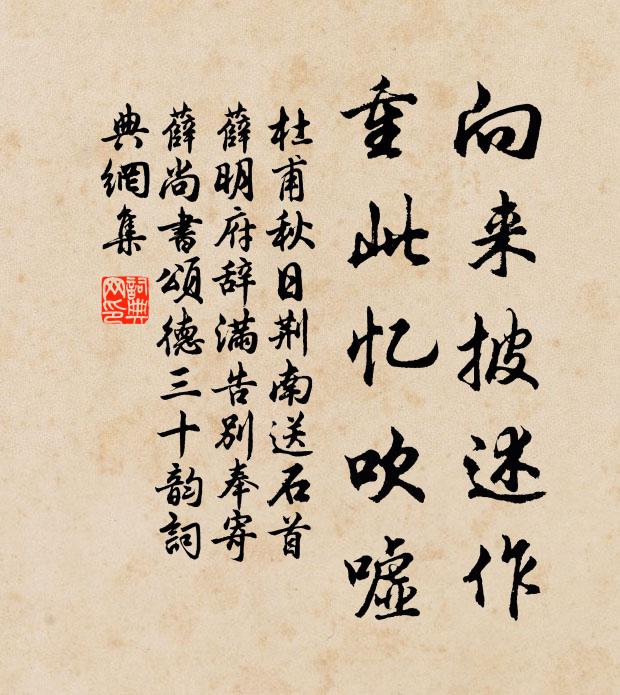 向来披述作
重此忆吹嘘
杜甫秋日荆南送石首
薛明府辞满告别奉寄
薛尚书颂德三十韵詞
典網集
詞典
网印